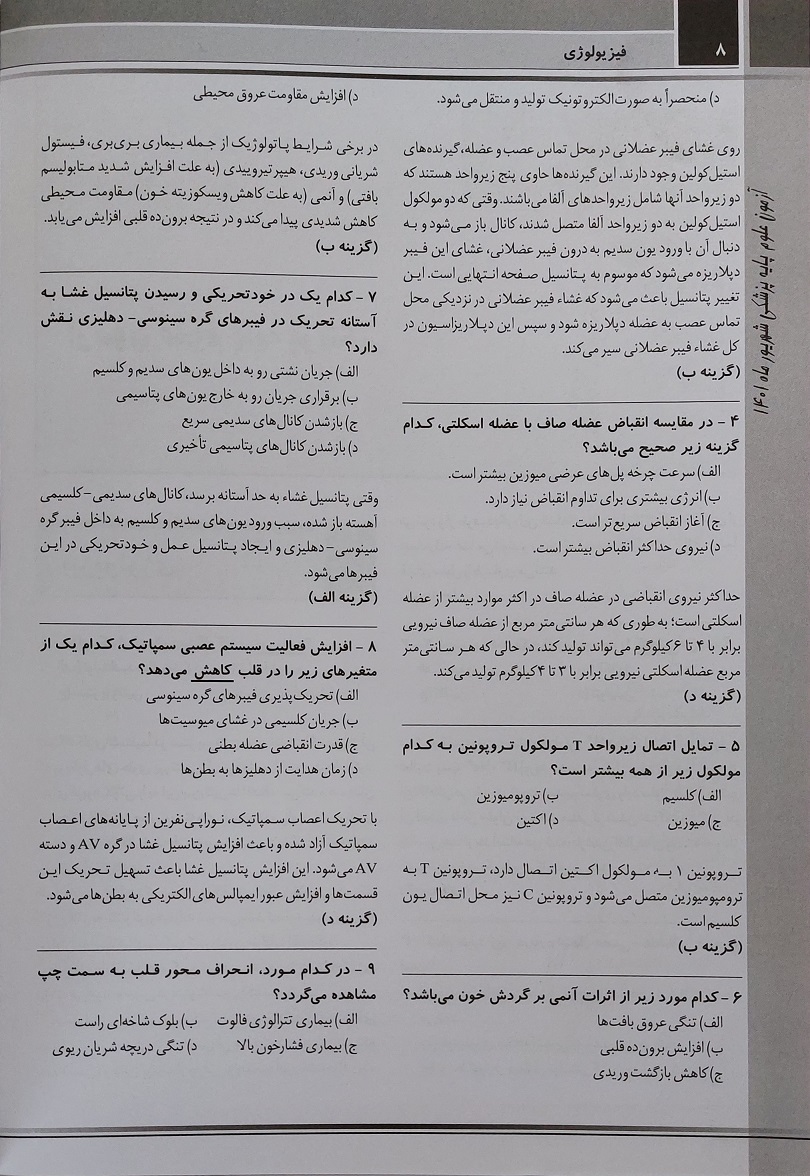 ۸
فیزیولوژی
آزمون علوم پایه پزشکی شهریور ماه ۱۴۰۱
د) منحصراً به صورت الکتروتونیک تولید و منتقل می‌شود.
روی غشای فیبر عضلانی در محل تماس عصب و عضله، گیرنده‌های
استیل‌کولین وجود دارند. این گیرنده‌ها حاوی پنج زیرواحد هستند که
دو زیرواحد آنها شامل زیرواحدهای آلفا می‌باشند. وقتی که دو مولکول
استیل‌کولین به دو زیرواحد آلفا متصل شدند، کانال باز می‌شود و به
دنبال آن با ورود یون سدیم به درون فیبر عضلانی، غشای این فیبر
دپلاریزه می‌شود که موسوم به پتانسیل صفحه انتهایی است. این
تغییر پتانسیل باعث می‌شود که غشاء فیبر عضلانی در نزدیکی محل
تماس عصب به عضله دپلاریزه شود و سپس این دپلاریزاسیون در
کل غشاء فیبر عضلانی سیر می‌کند.
(گزینه ب)
۴ - در مقایسه انقباض عضله صاف با عضله اسکلتی، کدام
گزینه زیر صحیح می‌باشد؟
الف) سرعت چرخه پل‌های عرضی میوزین بیشتر است.
ب) انرژی بیشتری برای تداوم انقباض نیاز دارد.
ج) آغاز انقباض سریع‌تر است.
د) نیروی حداکثر انقباض بیشتر است.
حداکثر نیروی انقباضی در عضله صاف در اکثر موارد بیشتر از عضله
اسکلتی است؛ به طوری که هر سانتی‌متر مربع از عضله صاف نیرویی
برابر با ۴ تا ۶ کیلوگرم می‌تواند تولید کند، در حالی که هر سانتی‌متر
مربع عضله اسکلتی نیرویی برابر با ۳ تا ۴ کیلوگرم تولید می‌کند.
(گزینه د)
۵ - تمایل اتصال زیرواحد T مولکول تروپونین به کدام
مولکول زیر از همه بیشتر است؟
الف) کلسیم ب) تروپومیوزین
ج) میوزین د) اکتین
تروپونین ۱ به مولکول اکتین اتصال دارد، تروپونین T به
ترومپومیوزین متصل می‌شود و تروپونین C نیز محل اتصال یون
کلسیم است.
(گزینه ب)
۶ - کدام مورد زیر از اثرات آنمی بر گردش خون می‌باشد؟
الف) تنگی عروق بافت‌ها
ب) افزایش برون‌ده قلبی
ج) کاهش بازگشت وریدی
د) افزایش مقاومت عروق محیطی
در برخی شرایط پاتولوژیک از جمله بیماری بری‌بری، فیستول
شریانی وریدی، هیپرتیروییدی (به علت افزایش شدید متابولیسم
بافتی) و آنمی (به علت کاهش ویسکوزیته خون) مقاومت محیطی
کاهش شدیدی پیدا می‌کند و در نتیجه برون‌ده قلبی افزایش می‌یابد.
(گزینه ب)
۷ - کدام یک در خودتحریکی و رسیدن پتانسیل غشا به
آستانه تحریک در فیبرهای گره سینوسی- دهلیزی نقش
دارد؟
الف) جریان نشتی رو به داخل یون‌های سدیم و کلسیم
ب) برقراری جریان رو به خارج یون‌های پتاسیمی
ج) باز شدن کانال‌های سدیمی سریع
د) باز شدن کانال‌های پتاسیمی تأخیری
وقتی پتانسیل غشاء به حد آستانه برسد، کانال‌های سدیمی-کلسیمی
آهسته باز شده، سبب ورود یون‌های سدیم و کلسیم به داخل فیبر گره
سینوسی- دهلیزی و ایجاد پتانسیل عمل و خودتحریکی در این
فیبرها می‌شود.
(گزینه الف)
۸ - افزایش فعالیت سیستم عصبی سمپاتیک، کدام یک از
متغیرهای زیر را در قلب کاهش می‌دهد؟
الف) تحریک‌پذیری فیبرهای گره سینوسی
ب) جریان کلسیمی در غشای میوسیت‌ها
ج) قدرت انقباضی عضله بطنی
د) زمان هدایت از دهلیزها به بطن‌ها
با تحریک اعصاب سمپاتیک، نوراپی‌نفرین از پایانه‌های اعصاب
سمپاتیک آزاد شده و باعث افزایش پتانسیل غشا در گره AV و دسته
AV می‌شود. این افزایش پتانسیل غشا باعث تسهیل تحریک این
قسمت‌ها و افزایش عبور ایمپالس‌های الکتریکی به بطن‌ها می‌شود.
(گزینه د)
۹ - در کدام مورد، انحراف محور قلب به سمت چپ
مشاهده می‌گردد؟
الف) بیماری تترالوژی فالوت ب) بلوک شاخه‌ای راست
ج) بیماری فشارخون بالا د) تنگی دریچه شریان ریوی